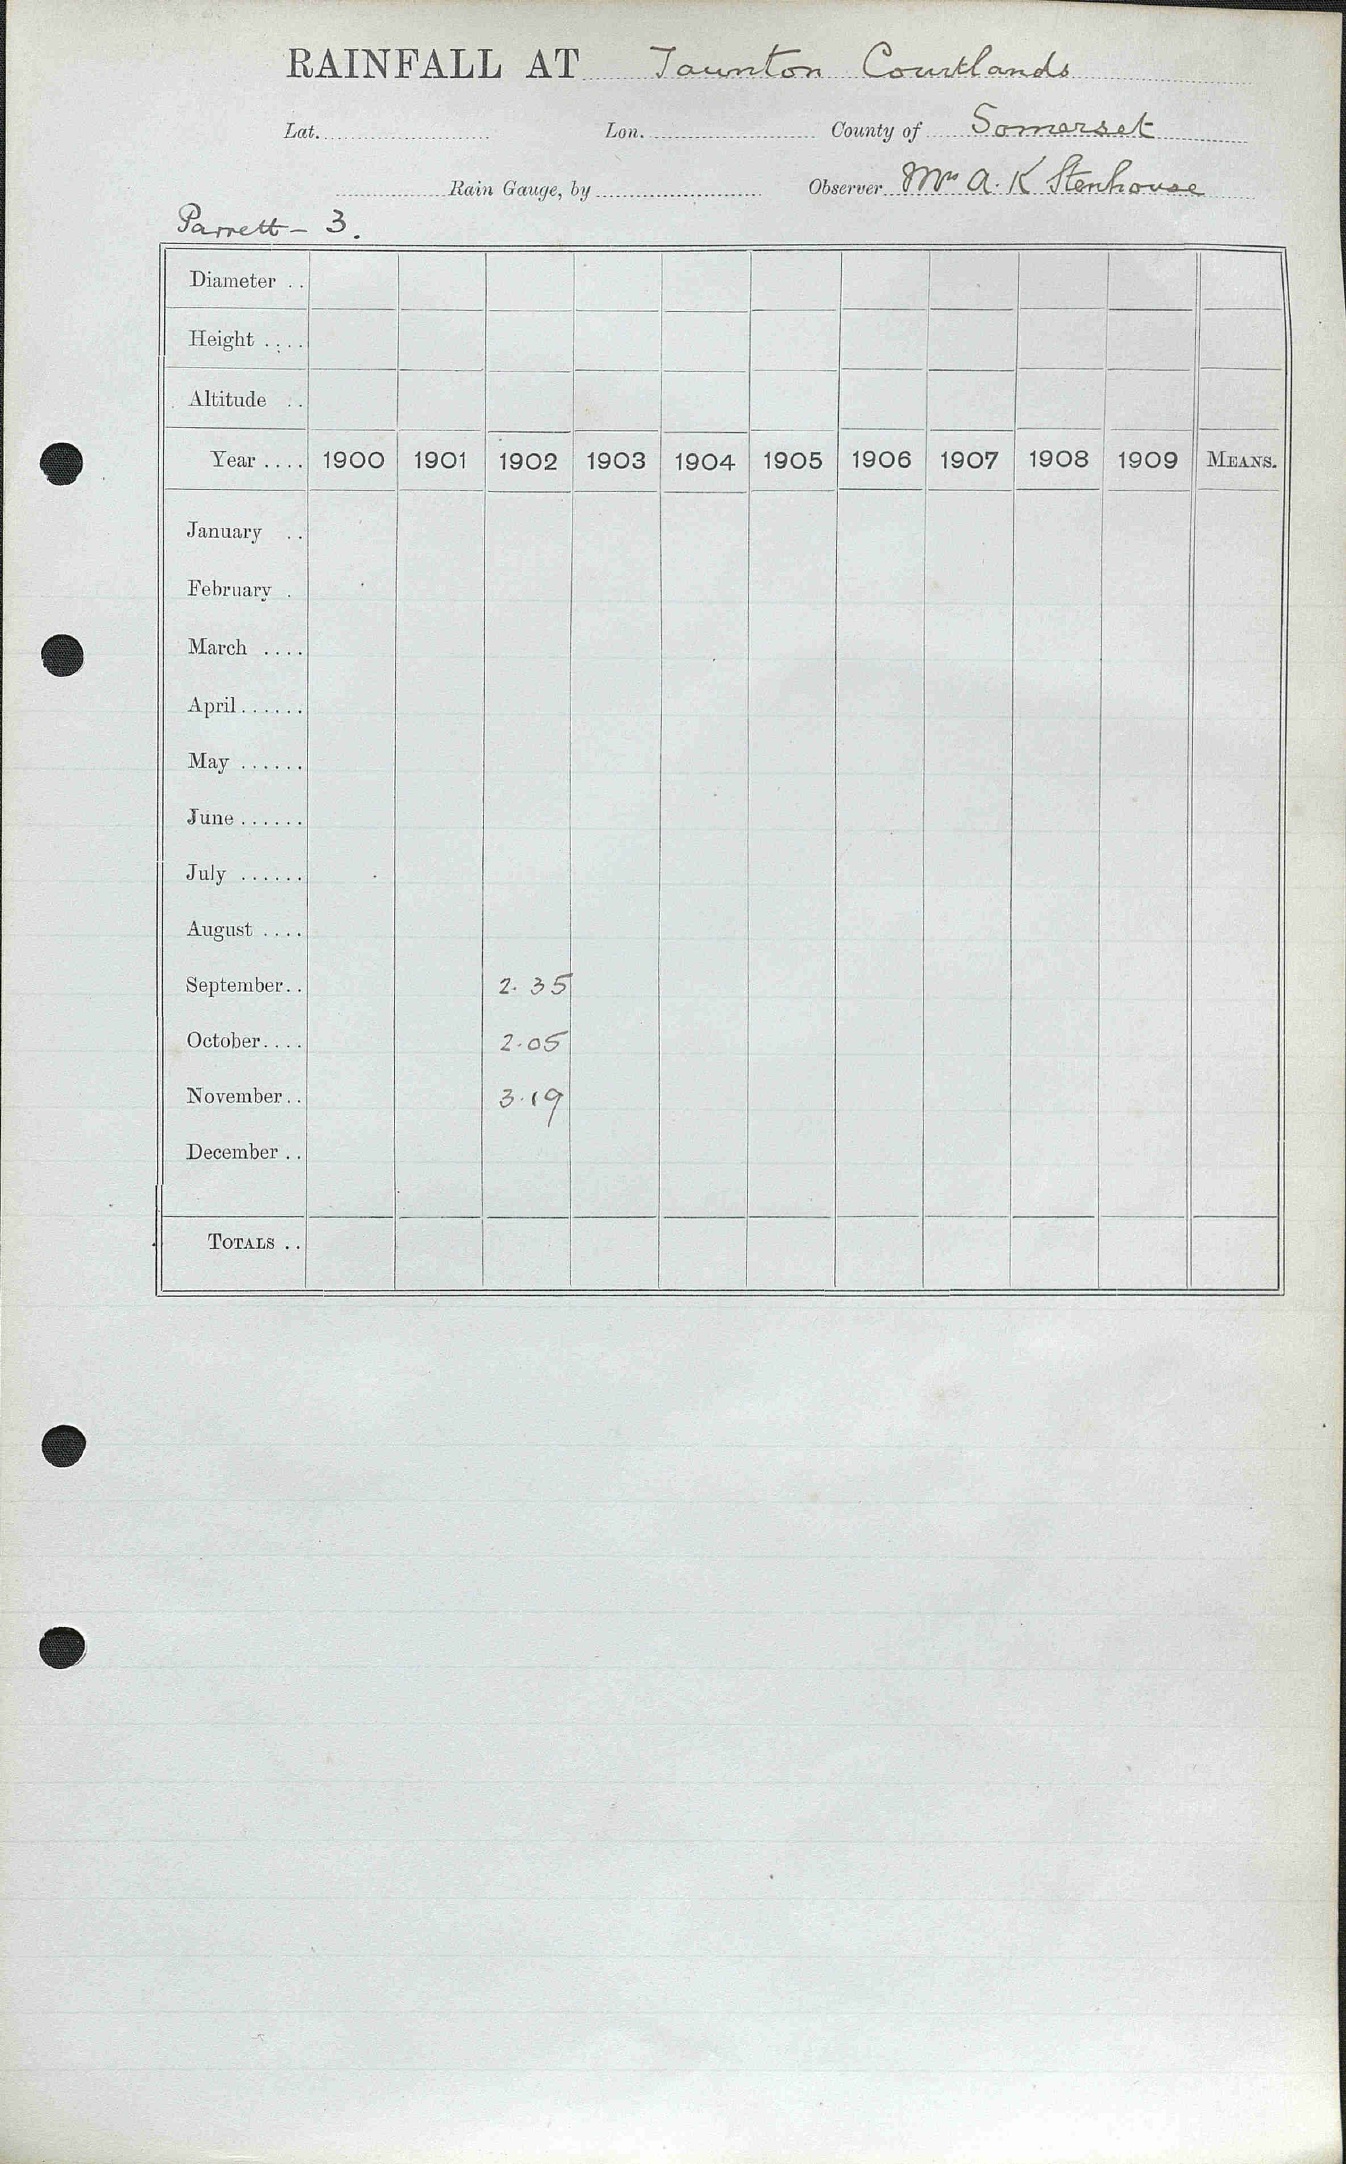 RAINFALL AT Taunton Courtlands
Lat. Lon. County of Somerset
Rain Gauge, by Observer Mrs A. K Stenhouse
Parrett – 3.
Diameter ..
Height ....
Altitude ..
Year .... 1900 1901 1902 1903 1904 1905 1906 1907 1908 1909 MEANS.
January ..
February .
March ....
April ......
May ......
June ......
July ......
August ....
September.. 2.35
October.... 2.05
November.. 3.19
December ..
TOTALS ..